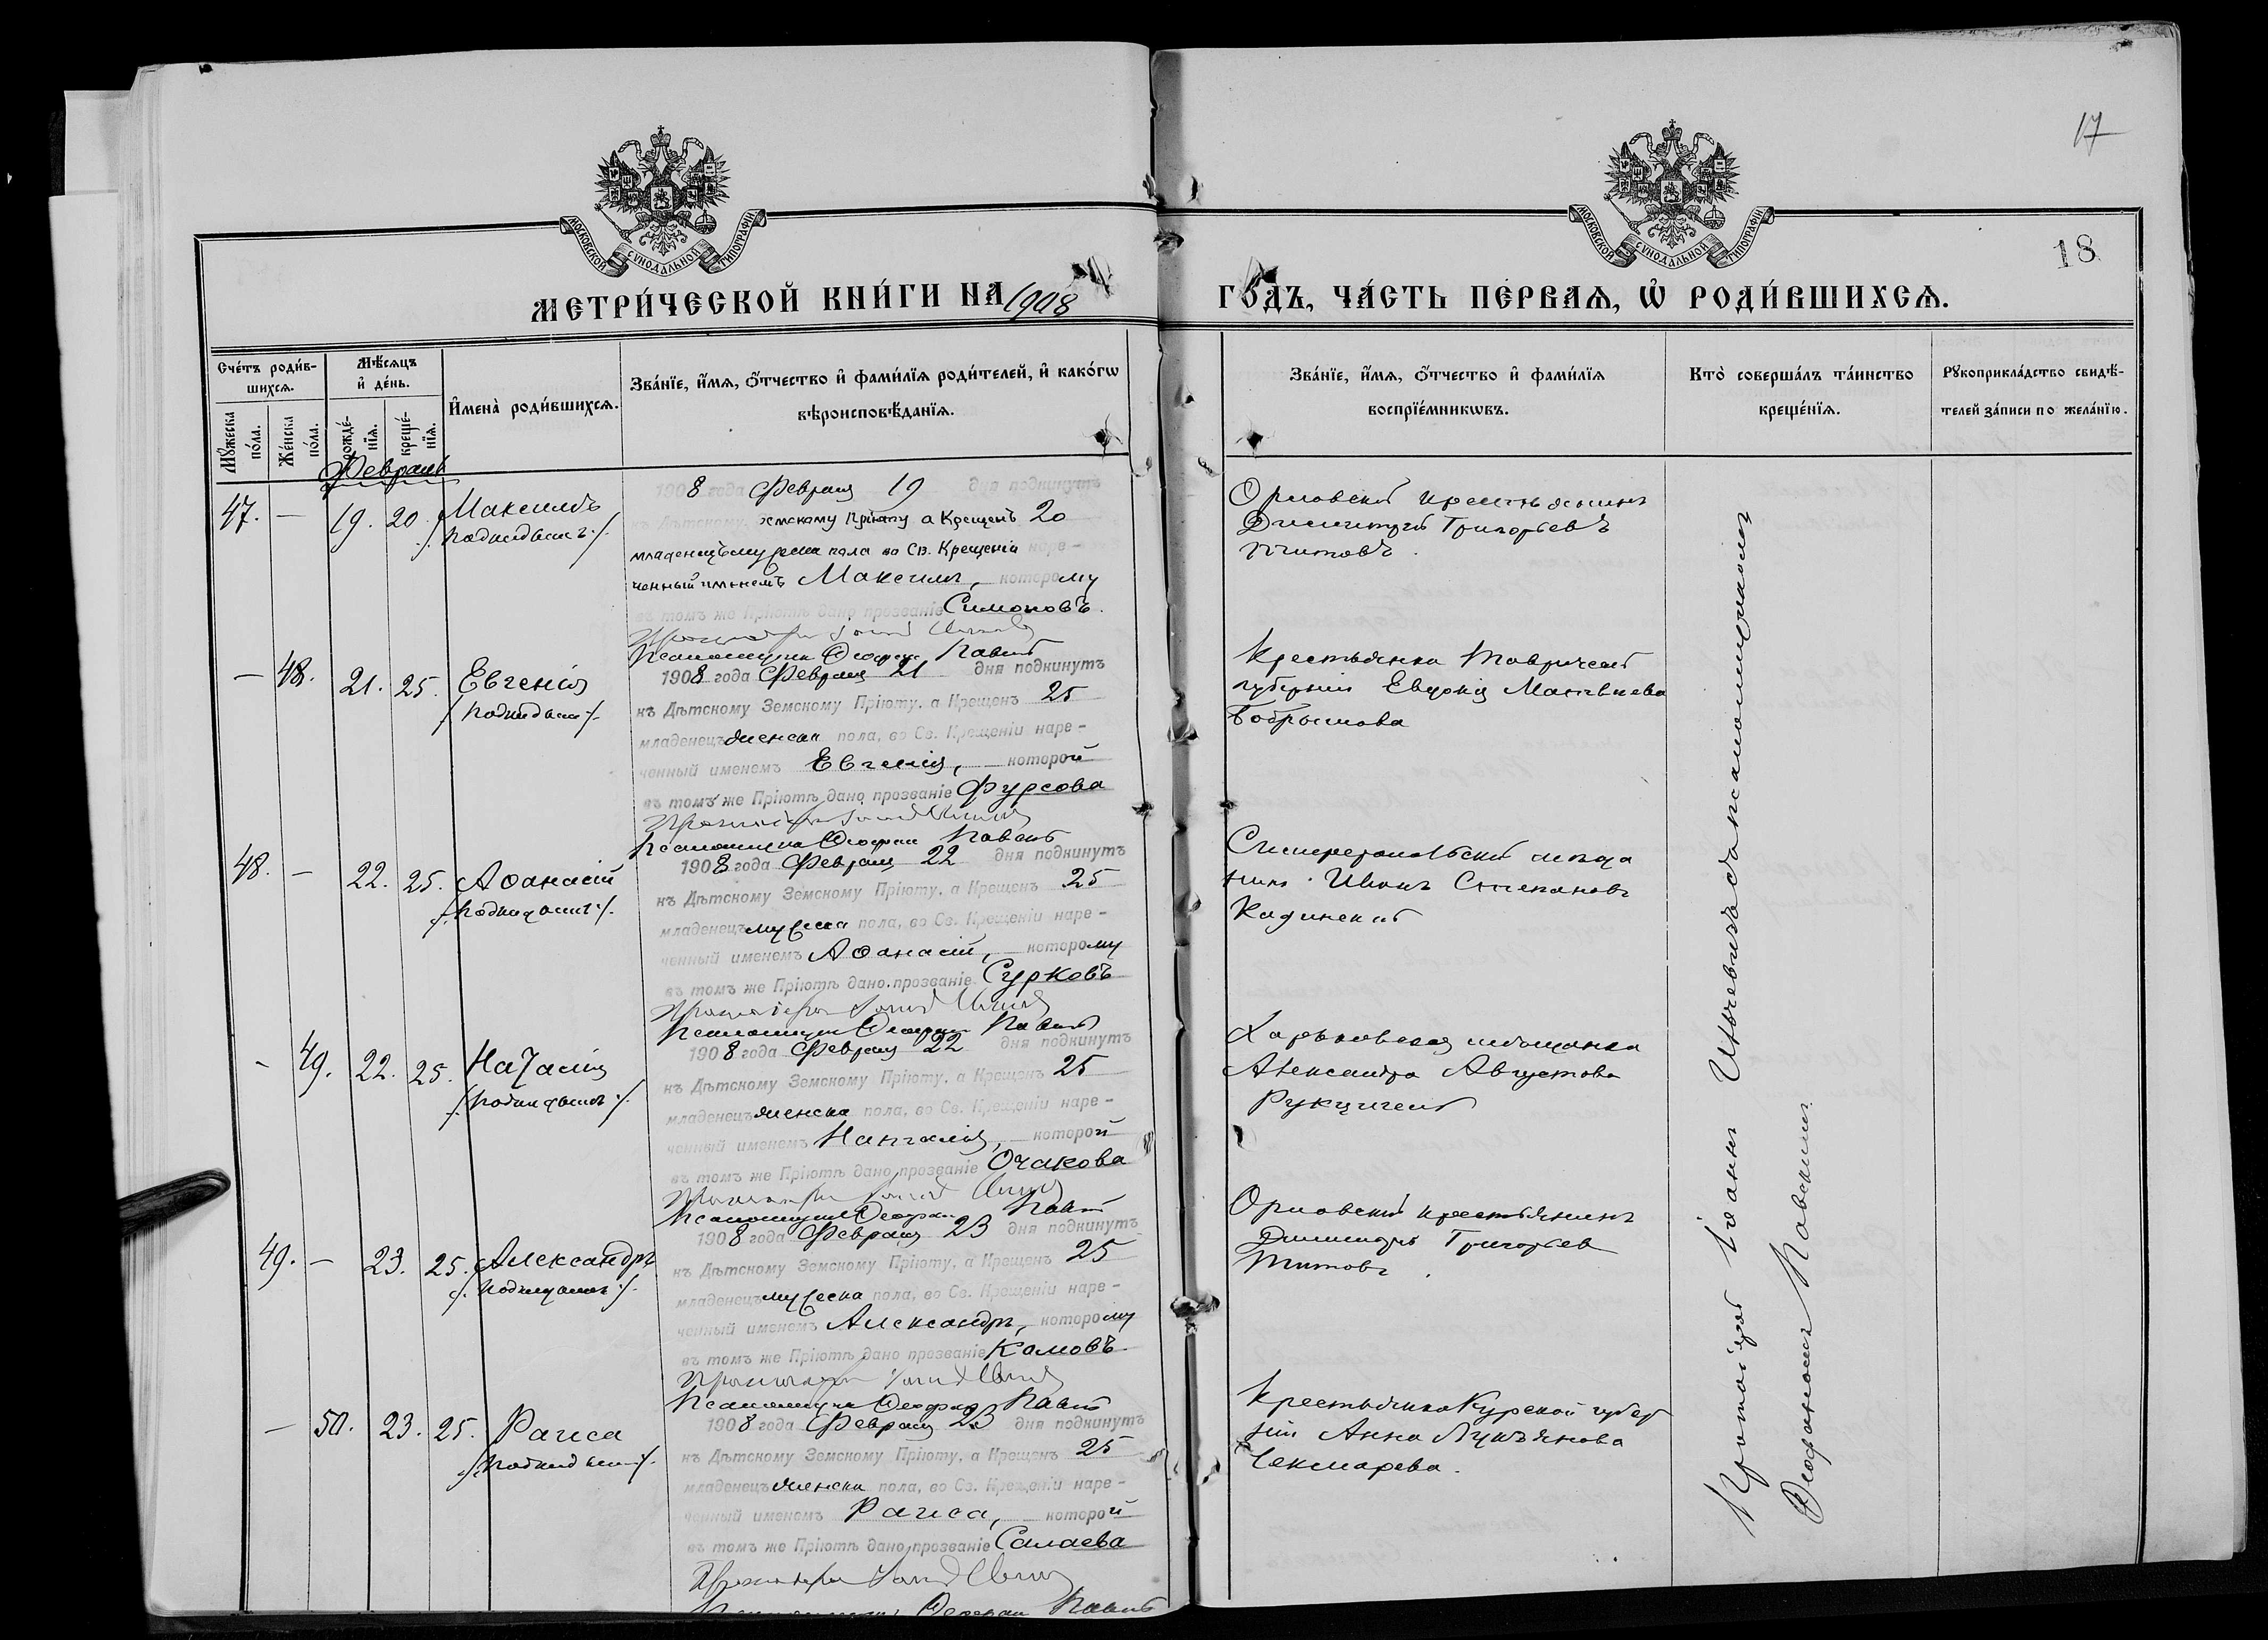 17
18
МОСКОВСКОЙ СѴНОДАЛЬНОЙ ТИПОГРАФІИ
МОСКОВСКОЙ СѴНОДАЛЬНОЙ ТИПОГРАФІИ
МЕТРИ́ЧЕСКОЙ КНИ́ГИ НА 1908 ГО́ДЪ, ЧА́СТЬ ПЕ́РВАѦ, Ѡ҆ РОДИ́ВШИХСѦ.
Сче́тъ роди́в-
шихсѧ.
Мѣ́сѧцъ
и҆ де́нь.
Мꙋ́жеска по́ла.
Же́нска по́ла.
рожде́-
нїѧ.
креще́-
нїѧ.
И҆мена̀ роди́вшихсѧ.
Зва́нїе, и҆́мѧ, ѻ҆́тчество и҆ фами́лїѧ роди́телей, и҆ како́гѡ
вѣроисповѣ́данїѧ.
Зва́нїе, и҆́мѧ, ѻ҆́тчество и҆ фами́лїѧ
воспрїе́мникѡвъ.
Кто̀ соверша́лъ та́инство
креще́нїѧ.
Рꙋкоприкла́дство свидѣ́-
телей за́писи по жела́нїю.
Февраль
47. — 19. 20. Максимъ
/. подкидышъ ./.
1908 года Февраля 19 дня подкинутъ
къ Дѣтскому Земскому Пріюту а Крещенъ 20
младенецъ мужеска пола во Св. Крещеніи наре-
ченный именемъ Максимъ, которому
въ томъ же Пріютѣ дано прозваніе Симоновъ.
Псаломщикъ Ѳеофанъ
Орловскій крестьянинъ
Димитрій Григорьевъ
Титовъ.
— 48. 21. 25. Евгенія
/. подкидышъ ./.
1908 года Февраля 21 дня подкинутъ
къ Дѣтскому Земскому Пріюту, а Крещенъ 25
младенецъ женска пола, во Св. Крещеніи наре-
ченный именемъ Евгенія, которой
въ томъ же Пріютѣ дано прозваніе Фурсова
Псаломщикъ Ѳеофанъ
Крестьянка Таврической
губерніи Евдокія Матвѣева
48. — 22. 25. Аѳанасій
/. подкидышъ ./.
1908 года Февраля 22 дня подкинутъ
къ Дѣтскому Земскому Пріюту, а Крещенъ 25
младенецъ мужеска пола, во Св. Крещеніи наре-
ченный именемъ Аѳанасій, которому
въ томъ же Пріютѣ дано прозваніе Сурковъ
Псаломщикъ Ѳеофанъ
Симферопольскій мѣща
нинъ Иванъ Степановъ
— 49. 22. 25. Наталія
/. подкидышъ ./.
1908 года Февраля 22 дня подкинутъ
къ Дѣтскому Земскому Пріюту, а Крещенъ 25
младенецъ женска пола, во Св. Крещеніи наре-
ченный именемъ Наталія, которой
въ томъ же Пріютѣ дано прозваніе Очакова
Псаломщикъ Ѳеофанъ
Харьковская мѣщанка
Александра Августова
49. — 23. 25. Александръ
/. подкидышъ ./.
1908 года Февраля 23 дня подкинутъ
къ Дѣтскому Земскому Пріюту, а Крещенъ 25
младенецъ мужеска пола, во Св. Крещеніи наре-
ченный именемъ Александръ, которому
въ томъ же Пріютѣ дано прозваніе Камовъ.
Псаломщикъ Ѳеофанъ
Орловскій крестьянинъ
Димитрій Григорьев
Титовъ.
— 50. 23. 25. Раиса
/. подкидышъ ./.
1908 года Февраля 23 дня подкинутъ
къ Дѣтскому Земскому Пріюту, а Крещенъ 25
младенецъ женска пола, во Св. Крещеніи наре-
ченный именемъ Раиса, которой
въ томъ же Пріютѣ дано прозваніе Салаева
Ѳеофанъ
Крестьянка Курской губер
ніи Анна Лукьянова
Чекмарева.
Протоіерей Іоаннъ съ псаломщикомъ
Ѳеофаномъ